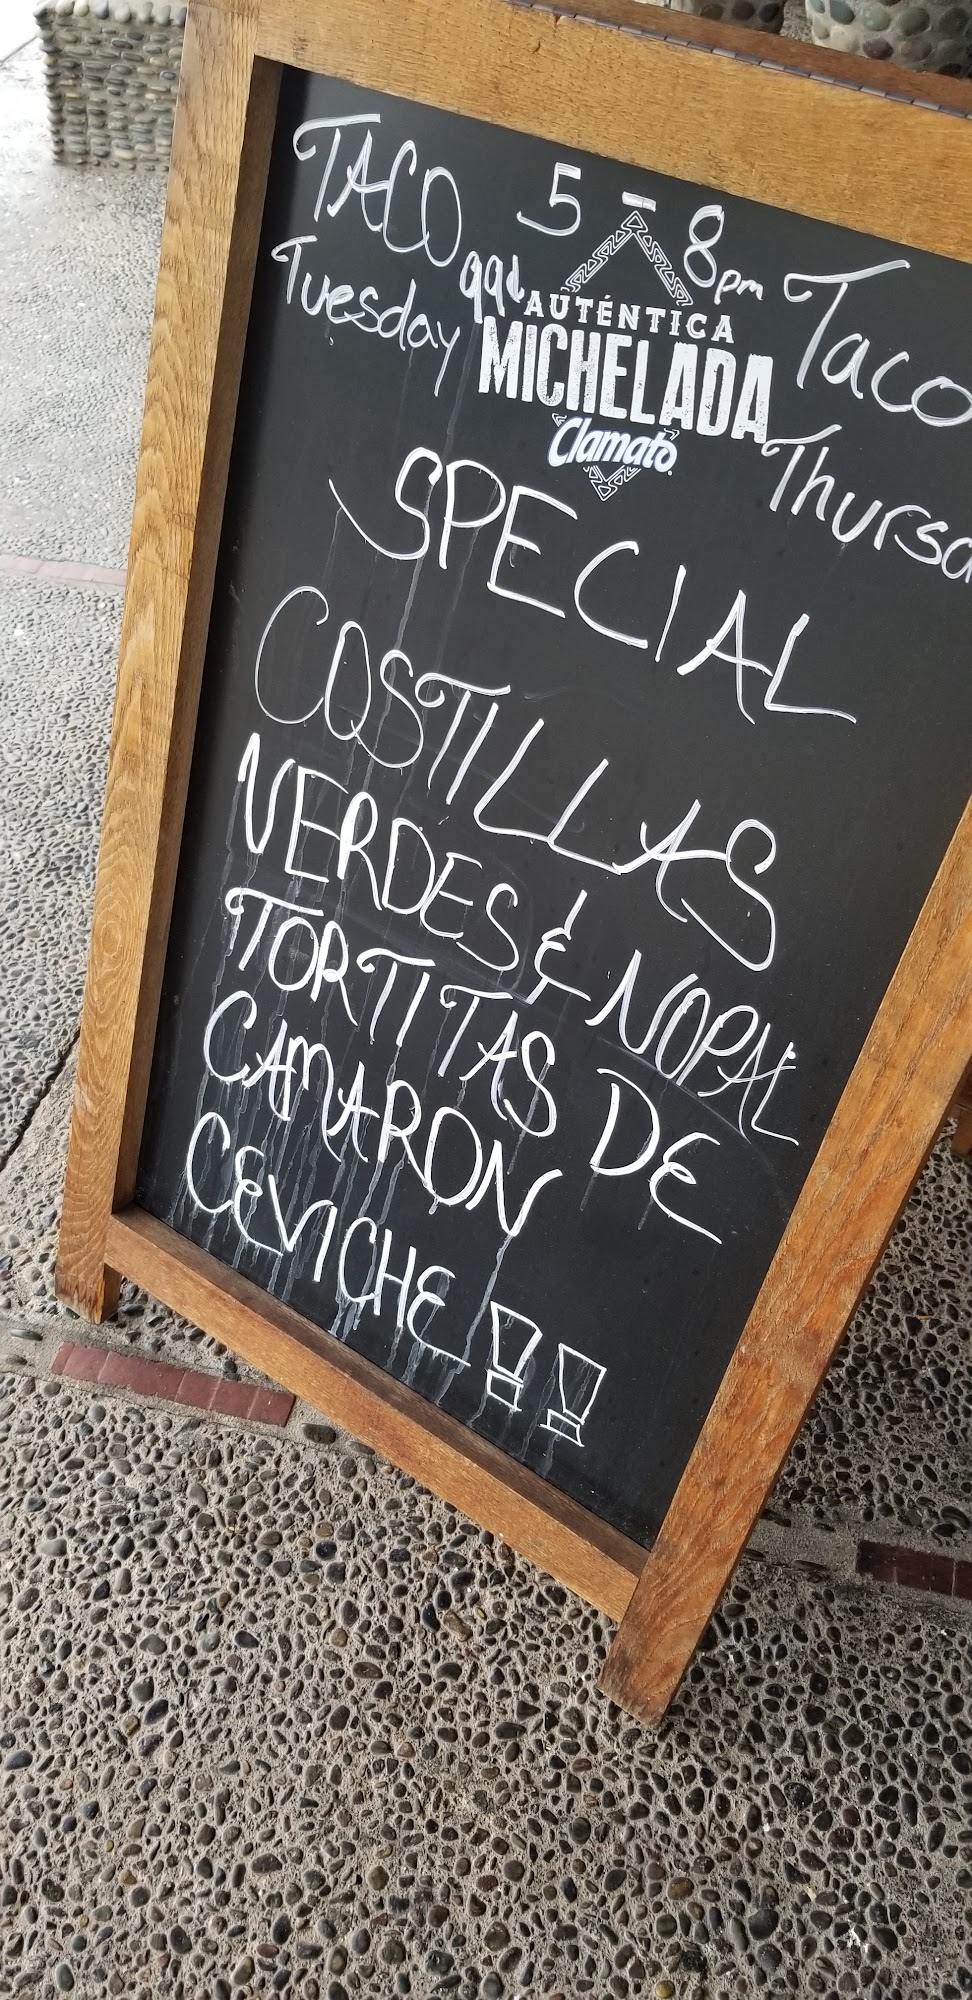 TACO
Tuesday
5 - 8pm
99¢
Taco
Thursda
AUTÉNTICA
MICHELADA
Clamato
SPECIAL
COSTILLAS
VERDES & NOPAL
TORTITAS DE
CAMARON
CEVICHE!!